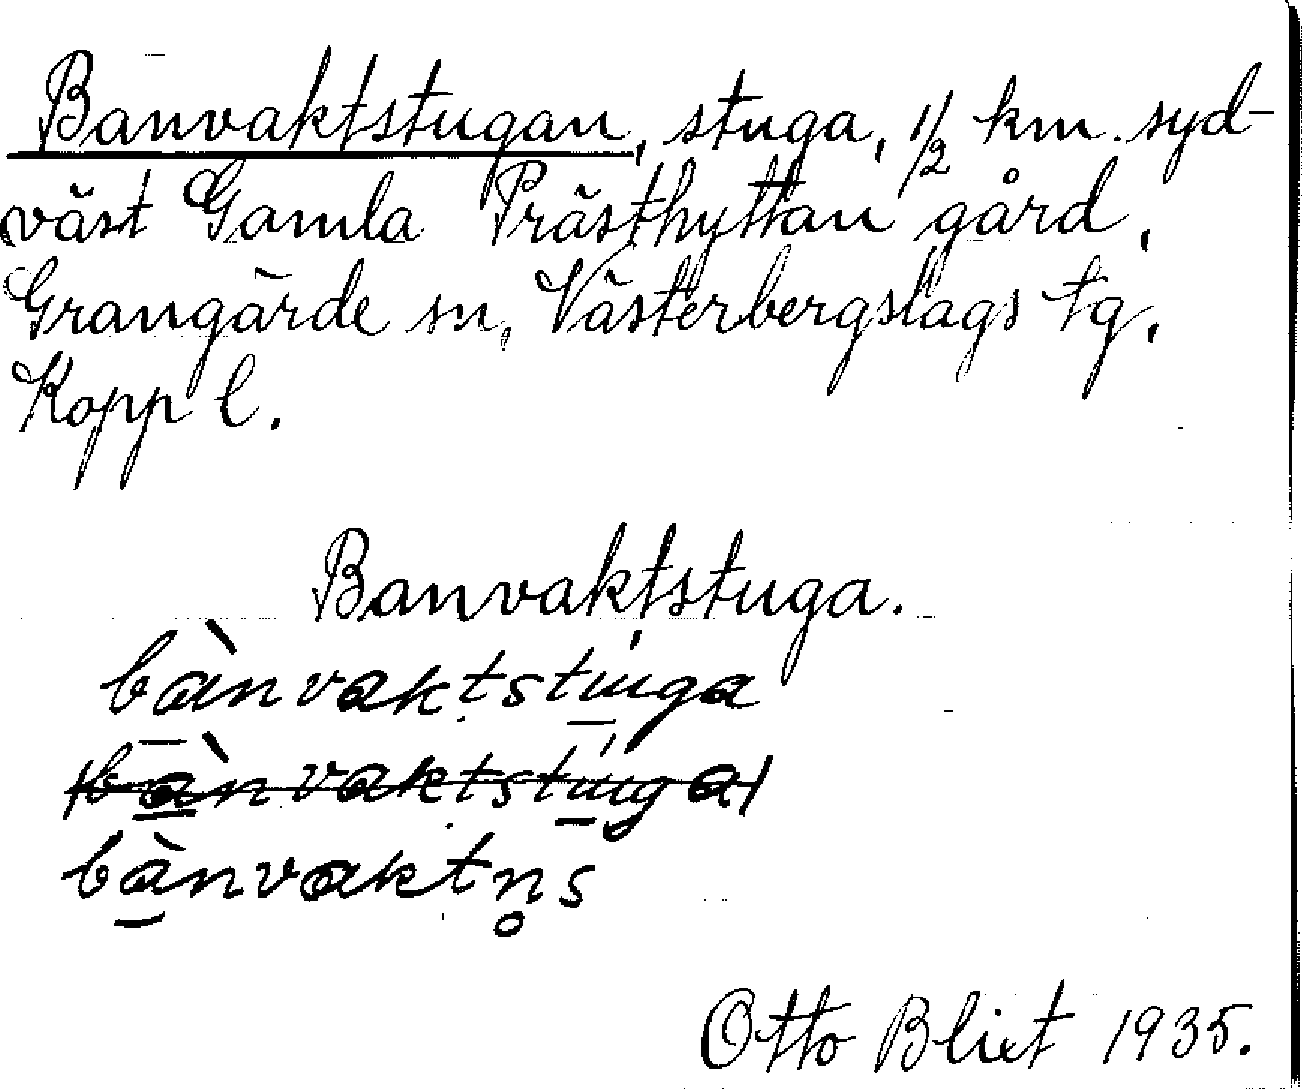 Banvaktstugan, stuga, 1/2 km. syd-
väst Gamla Prästhyttan gård,
Grangärde sn, Västerbergslags tg,
Kopp l.
Banvaktstuga.
bànvaktstúga
(bànvaktstúga)
bànvaktn̥s
Otto Blixt 1935.